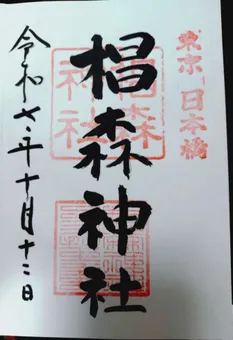 東京 日本橋
椙森神社
椙森神社
令和七年十月十二日